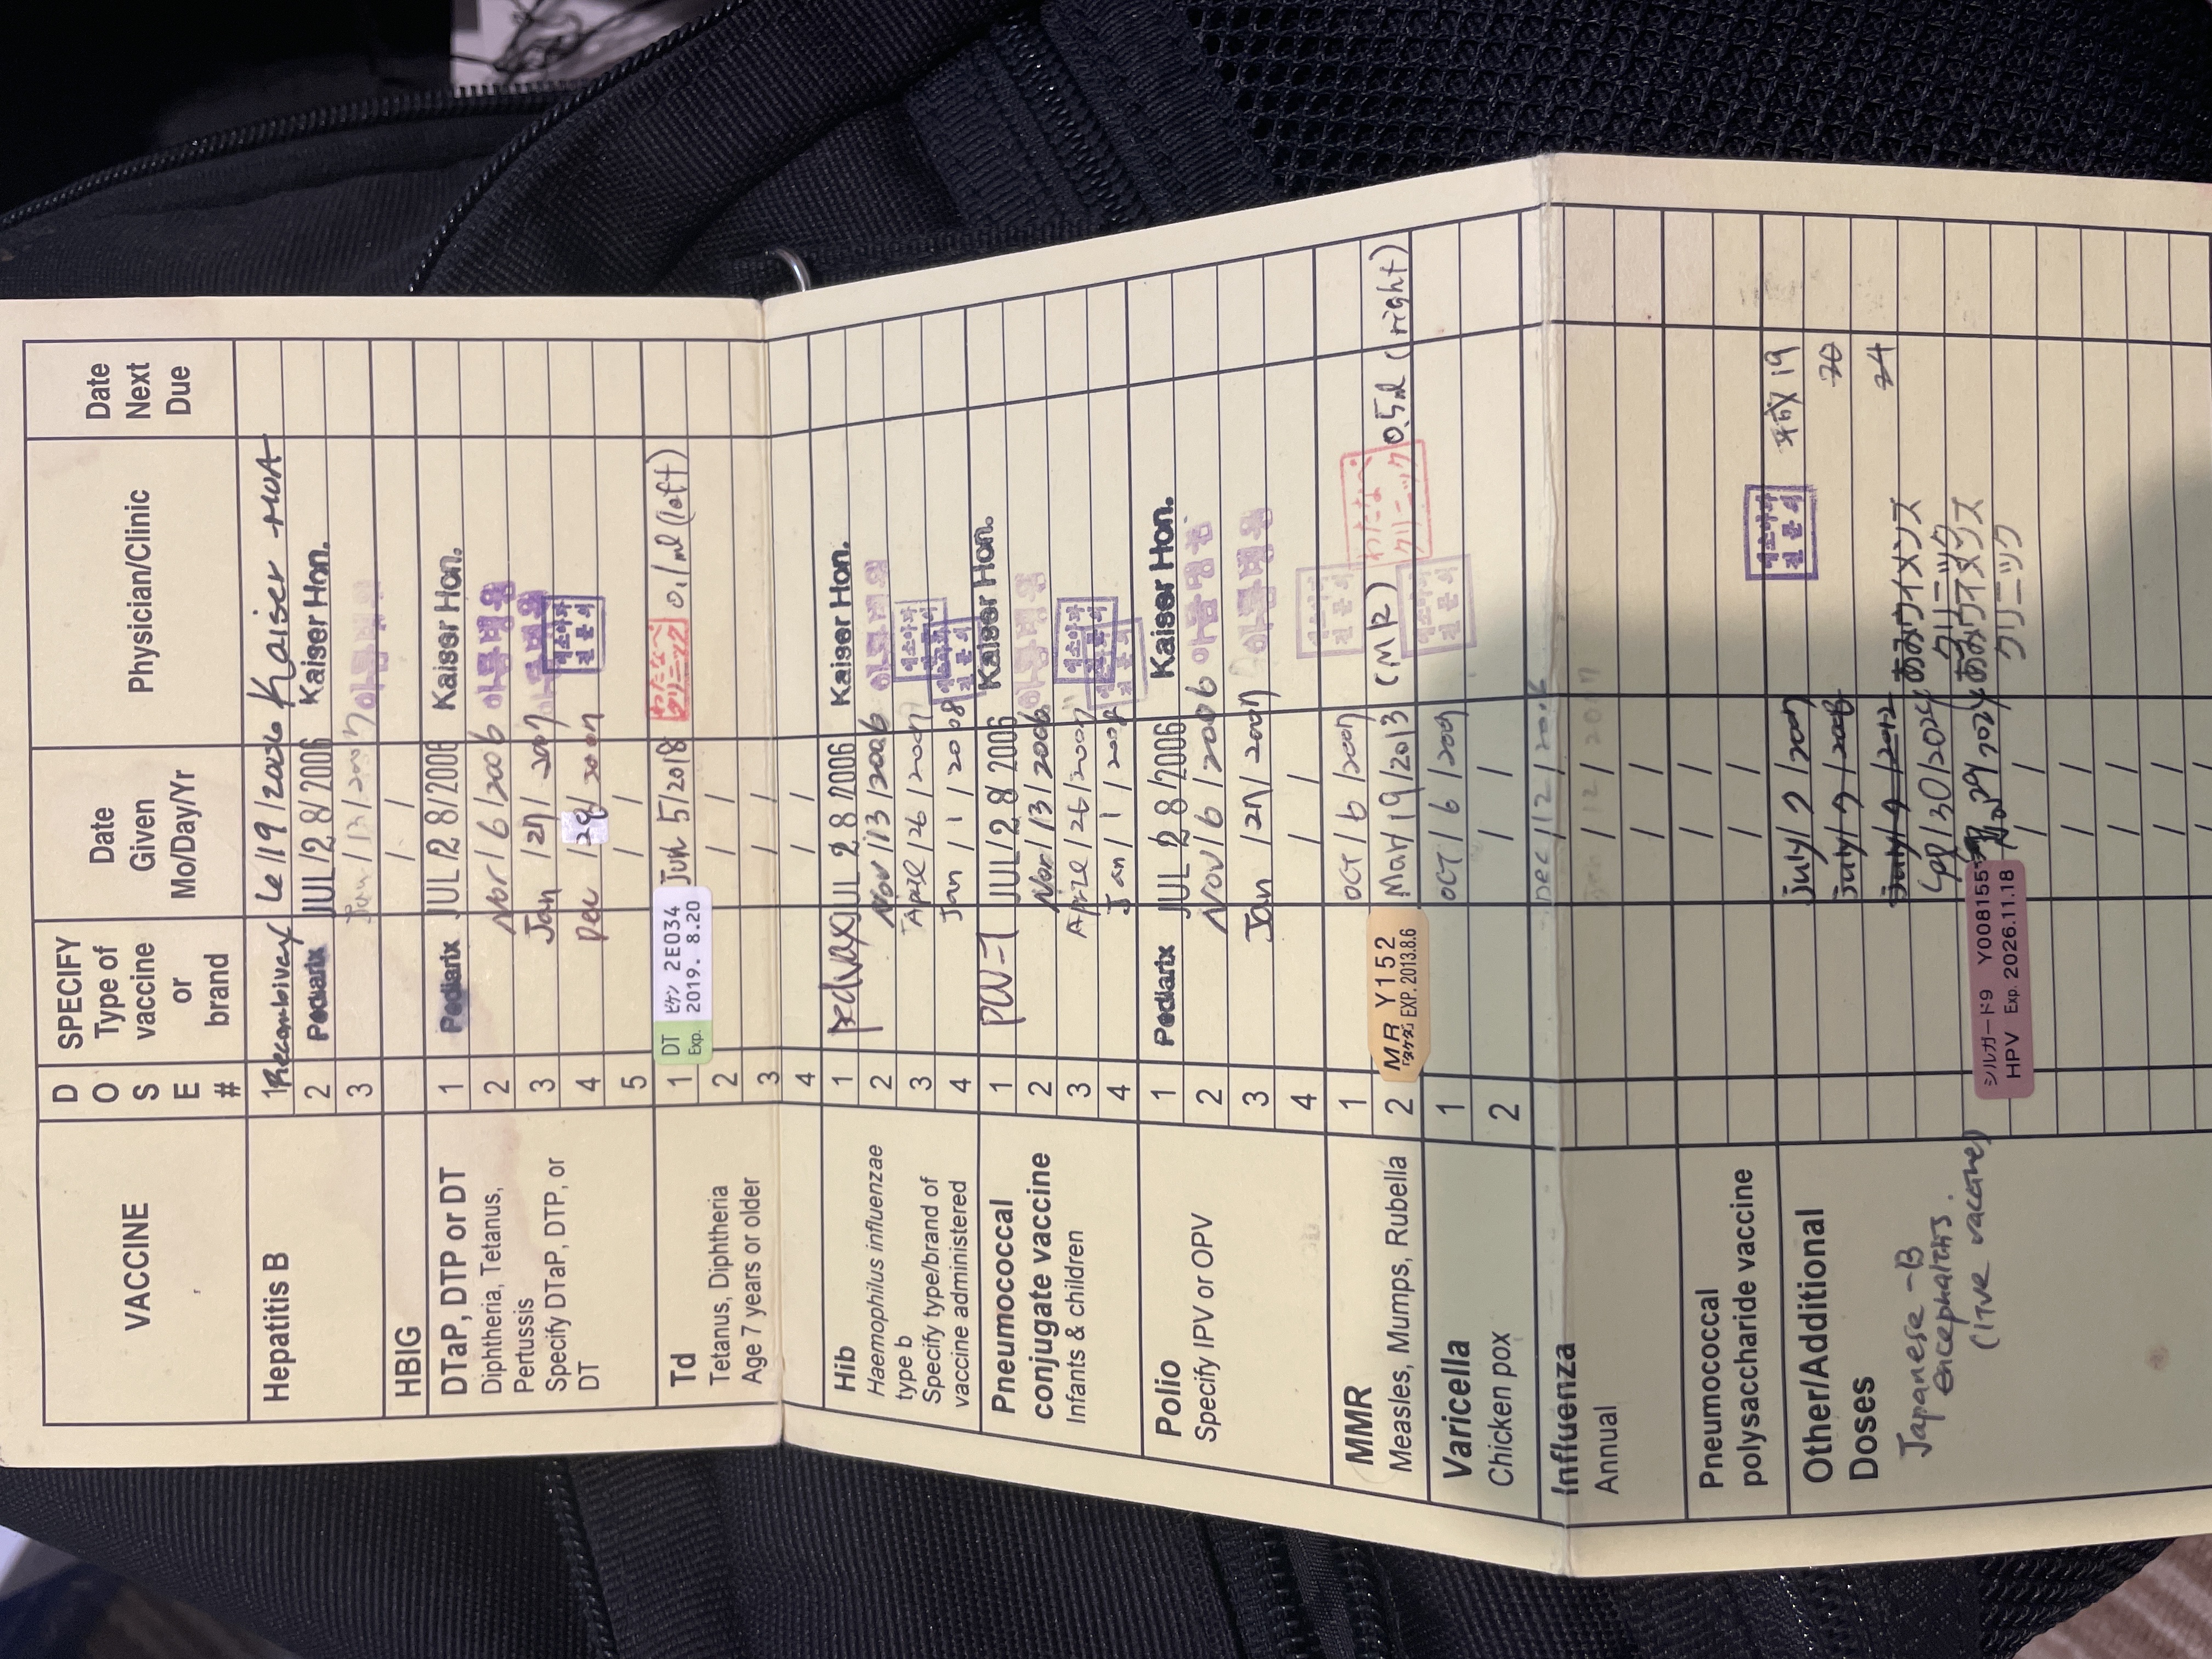 VACCINE
D O S E #
SPECIFY Type of vaccine or brand
Date Given Mo/Day/Yr
Physician/Clinic
Date Next Due
Hepatitis B
1 Recombivax 6/19/2006 Kaiser MOA
2 Pediarix JUL/28/2006 Kaiser Hon.
3 Jan/13/2007
HBIG / /
DTaP, DTP or DT
Diphtheria, Tetanus,
Pertussis
Specify DTaP, DTP, or
DT
1 Pediarix JUL/28/2006 Kaiser Hon.
2 Nov/6/2006 아름병원
3 Jan/27/2007 아름병원
4 Dec/28/2007
5 / /
Td
Tetanus, Diphtheria
Age 7 years or older
1 DT ビケン 2E034
Exp. 2019. 8.20
Jun 5/2018 わたなべクリニック 0.1ml (left)
2 / /
3 / /
4 / /
Hib
Haemophilus influenzae
type b
Specify type/brand of
vaccine administered
1 pedvax JUL 28/2006 Kaiser Hon.
2 Nov/13/2006
3 April/26/2007
4 Jan/1/2008
Pneumococcal
conjugate vaccine
Infants & children
1 PCV-7 JUL/28/2006 Kaiser Hon.
2 Nov/13/2006
3 April/26/2007
4 Jan/1/2008
Polio
Specify IPV or OPV
1 Pediarix JUL 28/2006 Kaiser Hon.
2 Nov/6/2006
3 Jan/27/2007
4 / /
MMR
Measles, Mumps, Rubella
1 OCT/6/2007
2 MR Y152
「タケダ」 EXP. 2013.8.6
Mar/19/2013 (MR) わたなべクリニック 0.5ml (right)
Varicella
Chicken pox
1 OCT/6/2007
2 / /
Influenza
Annual
Dec/12/2006
/12/2007
/ /
Pneumococcal
polysaccharide vaccine
/ /
/ /
Other/Additional
Doses
Japanese-B
encephalitis.
(live vaccine)
July/7/2007 平成19
July/7/2008 20
July/9/2012 24
30/2024 あみウイメンズ
クリニック
シルガード9 Y008155
HPV Exp. 2026.11.18
29/2024 あみウイメンズ
クリニック